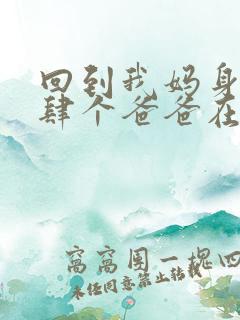 回到我妈身
肆个爸爸在
窝窝围一棍四
未经同意禁止转载